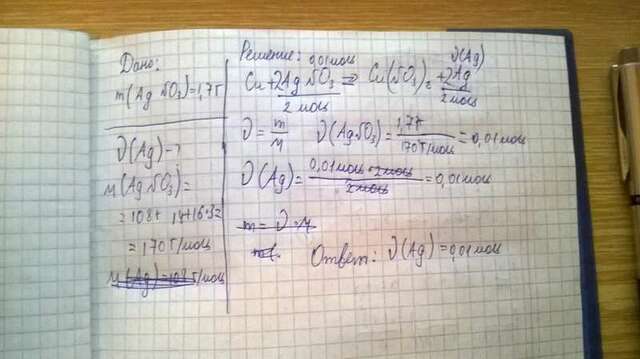 Дано:
m(AgNO3)=1,7г
ν(Ag)-?
M(AgNO3)=
=108+14+16·3=
=170г/моль
M(Ag)=108г/моль
Решение:
0,01моль ν(Ag)
Cu+2AgNO3=Cu(NO3)2+2Ag
2моль 2моль
ν=m/M ν(AgNO3)=1,7г/170г/моль=0,01моль
ν(Ag)=0,01моль·2моль/2моль=0,01моль
m=ν·M
Ответ: ν(Ag)=0,01моль